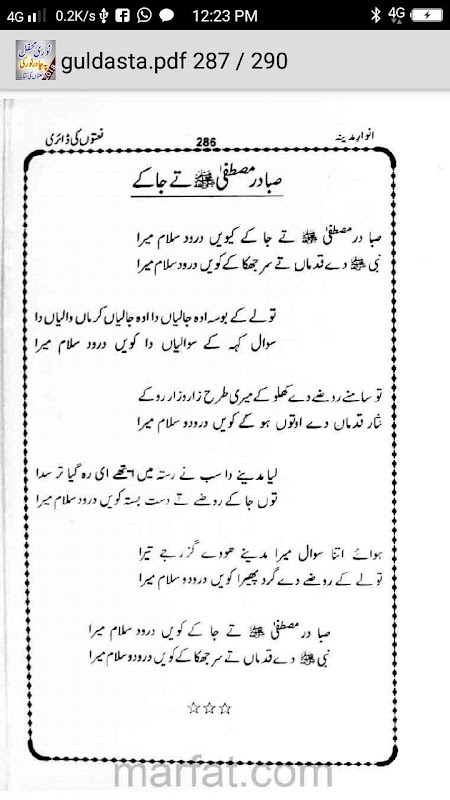 4G 0.2K/s 12:23 PM 4G
guldasta.pdf 287 / 290
انوارِ مدینہ 286 نعتوں کی ڈائری
صبا در مصطفیٰ ﷺ تے جا کے
صبا در مصطفیٰ ﷺ تے جا کے کیویں درود سلام میرا
نبی ﷺ دے قدماں تے سر جھکا کے کویں درود سلام میرا
تو لے کے بوسہ اوہ جالیاں دا اوہ جالیاں کرماں والیاں دا
سوال کہہ کے سوالیاں دا کویں درود سلام میرا
تو سامنے روضے دے کھلو کے میری طرح زار و زار رو کے
نثار قدماں دے اوتوں ہو کے کویں درود و سلام میرا
لیا مدینے دا سب نے رستہ میں ایتھے ای رہ گیا تر سدا
توں جا کے روضے تے دست بستہ کویں درود و سلام میرا
ہوائے اتنا سوال میرا مدینے ھودے گزر جے تیرا
تو لے کے روضے دے گرد پھیرا کویں درود و سلام میرا
صبا در مصطفیٰ ﷺ تے جا کے کویں درود سلام میرا
نبی ﷺ دے قدماں تے سر جھکا کے کویں درود و سلام میرا
☆☆☆
marfat.com